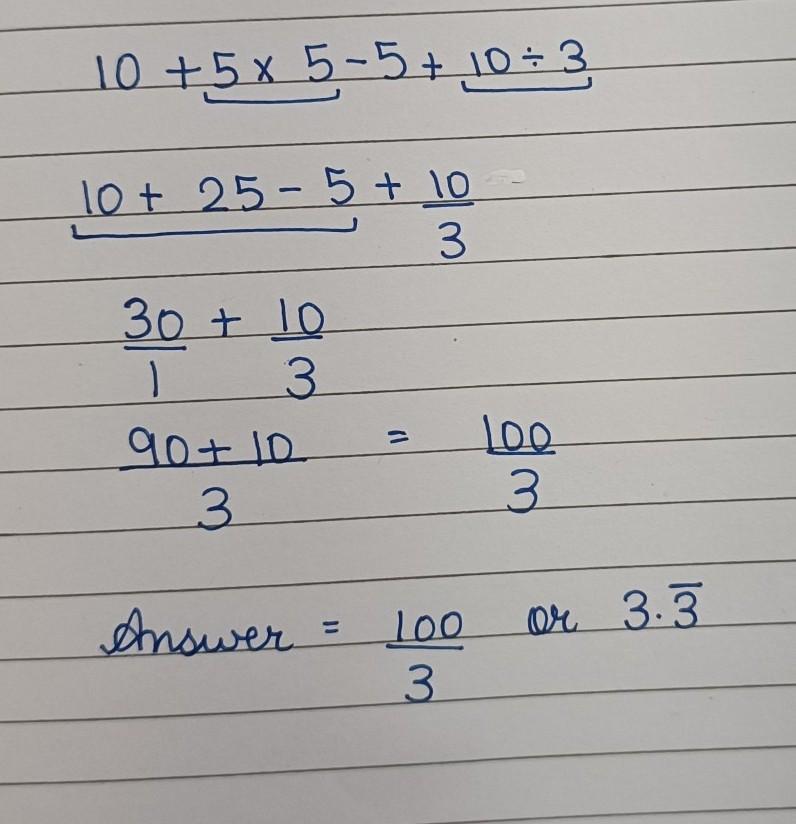 10 + 5 × 5 - 5 + 10 ÷ 3
10 + 25 - 5 + 10/3
30/1 + 10/3
90 + 10/3 = 100/3
Answer = 100/3 or 3.3̅